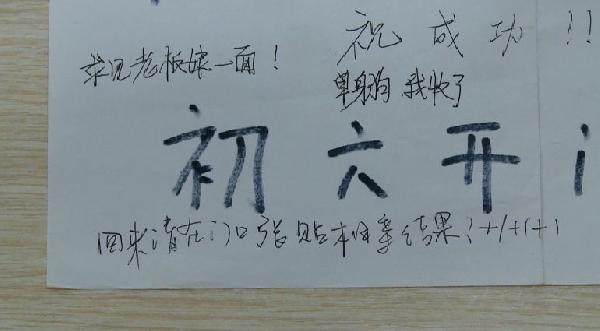 祝成功!!
求见老板娘一面!
单身狗 我收了
初六开
回来请在门口张贴本 结果!+1+1+1